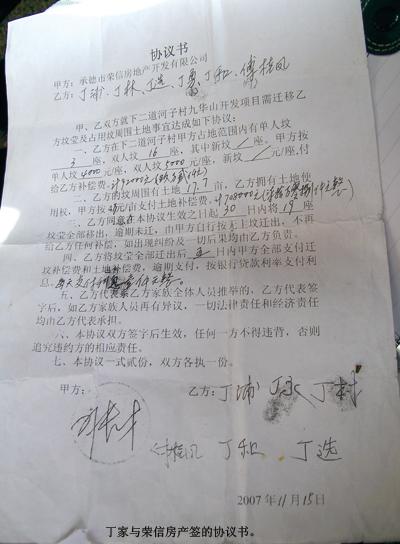 协议书
甲方：承德市荣信房地产开发有限公司
乙方：丁浦、丁林、丁选、丁勇、丁和、傅桂凤
甲、乙双方就下二道河子村九华山开发项目需迁移乙
方坟茔及占用坟周围土地事宜达成如下协议：
一、乙方在下二道河子村甲方占地范围内有单人坟
3 座，双人坟 16 座，其中新坟 / 座，甲方按
单人坟 4000 元/座，双人坟 5000 元/座，新坟 / 元/座，付
给乙方补偿费，计92000元
二、乙方的坟周围有土地 17.7 亩，乙方拥有土地使
用权，甲方按 元/亩支付土地补偿费，计708000元
三、乙方同意在本协议生效之日起 30 日内将 19 座
坟茔全部移出，逾期未迁，由甲方自行按无主坟迁出，不再
给乙方任何补偿，如出现纠纷及一切后果均由乙方负责。
四、乙方将坟茔全部迁出后 五 日内甲方全部支付迁
坟补偿费和土地补偿费，逾期支付，按银行贷款利率支付利
息。
五、乙方代表系乙方家族全体人员推举的，乙方代表签
字后，如乙方家族人员再有异议，一切法律责任和经济责任
均由乙方代表承担。
六、本协议双方签字后生效，任何一方不得违背，否则
追究违约方的相应责任。
七、本协议一式贰份，双方各执一份。
甲方： 乙方：丁浦 丁永 丁村
桂凤 丁和 丁选
2007年11月15日
丁家与荣信房产签的协议书。